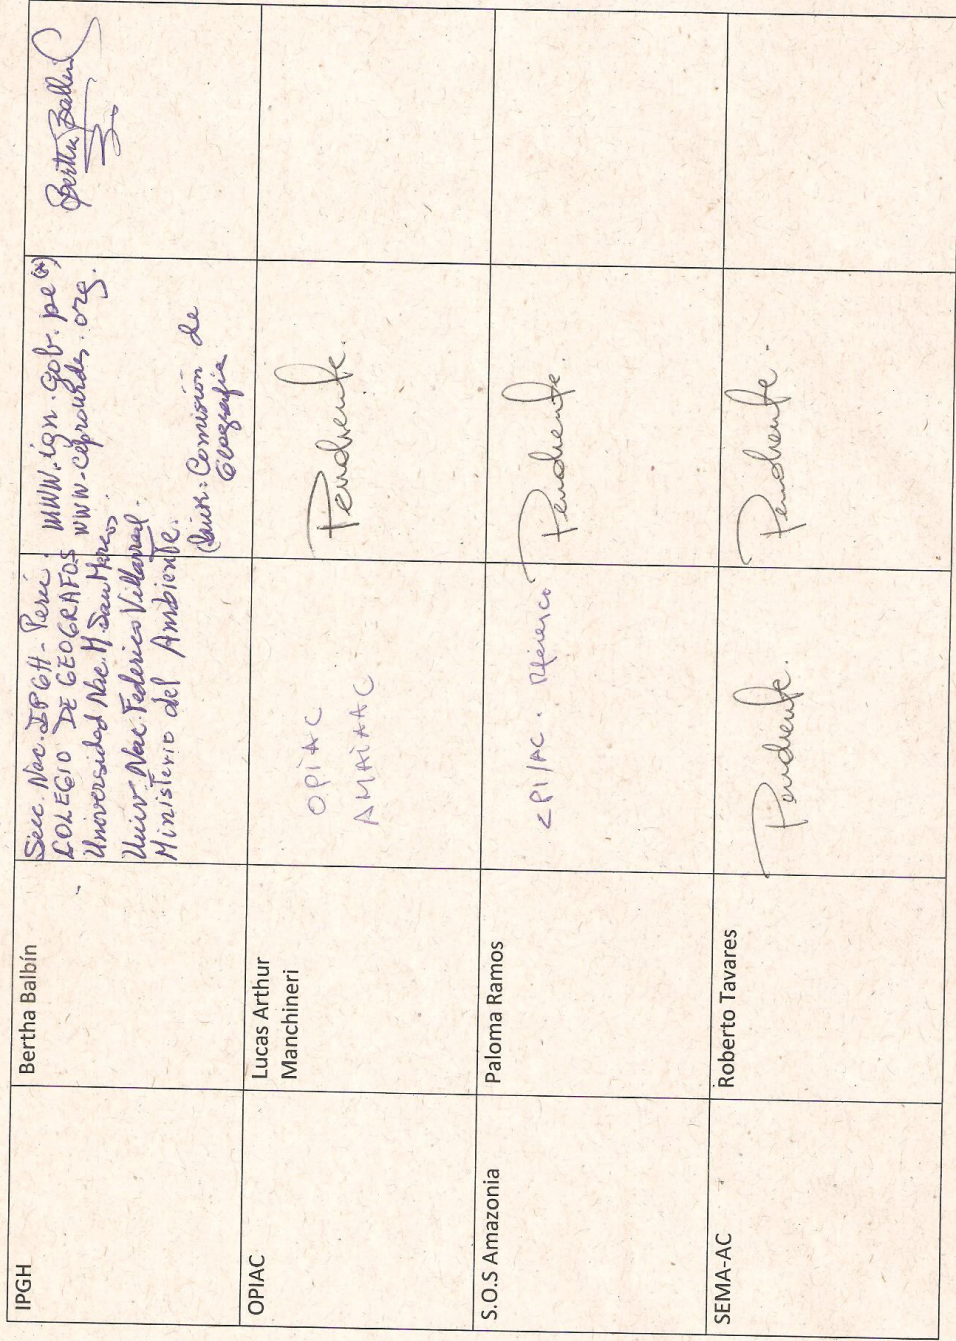 IPGH
Bertha Balbín
Secc. Nac. IPGH - Perú.
COLEGIO DE GEOGRAFOS
Universidad Nac. M. San Marcos
Univ. Nac. Federico Villarreal.
Ministerio del Ambiente.
www.ign.gob.pe (*)
www.ceprounides.org.
Comisión de
Geografía
Bertha Balbín
OPIAC
Lucas Arthur
Manchineri
OPIAC
AMAIAAC
Pendiente.
S.O.S Amazonia
Paloma Ramos
CPI/AC.
Pendiente.
SEMA-AC
Roberto Tavares
Pendiente.
Pendiente.